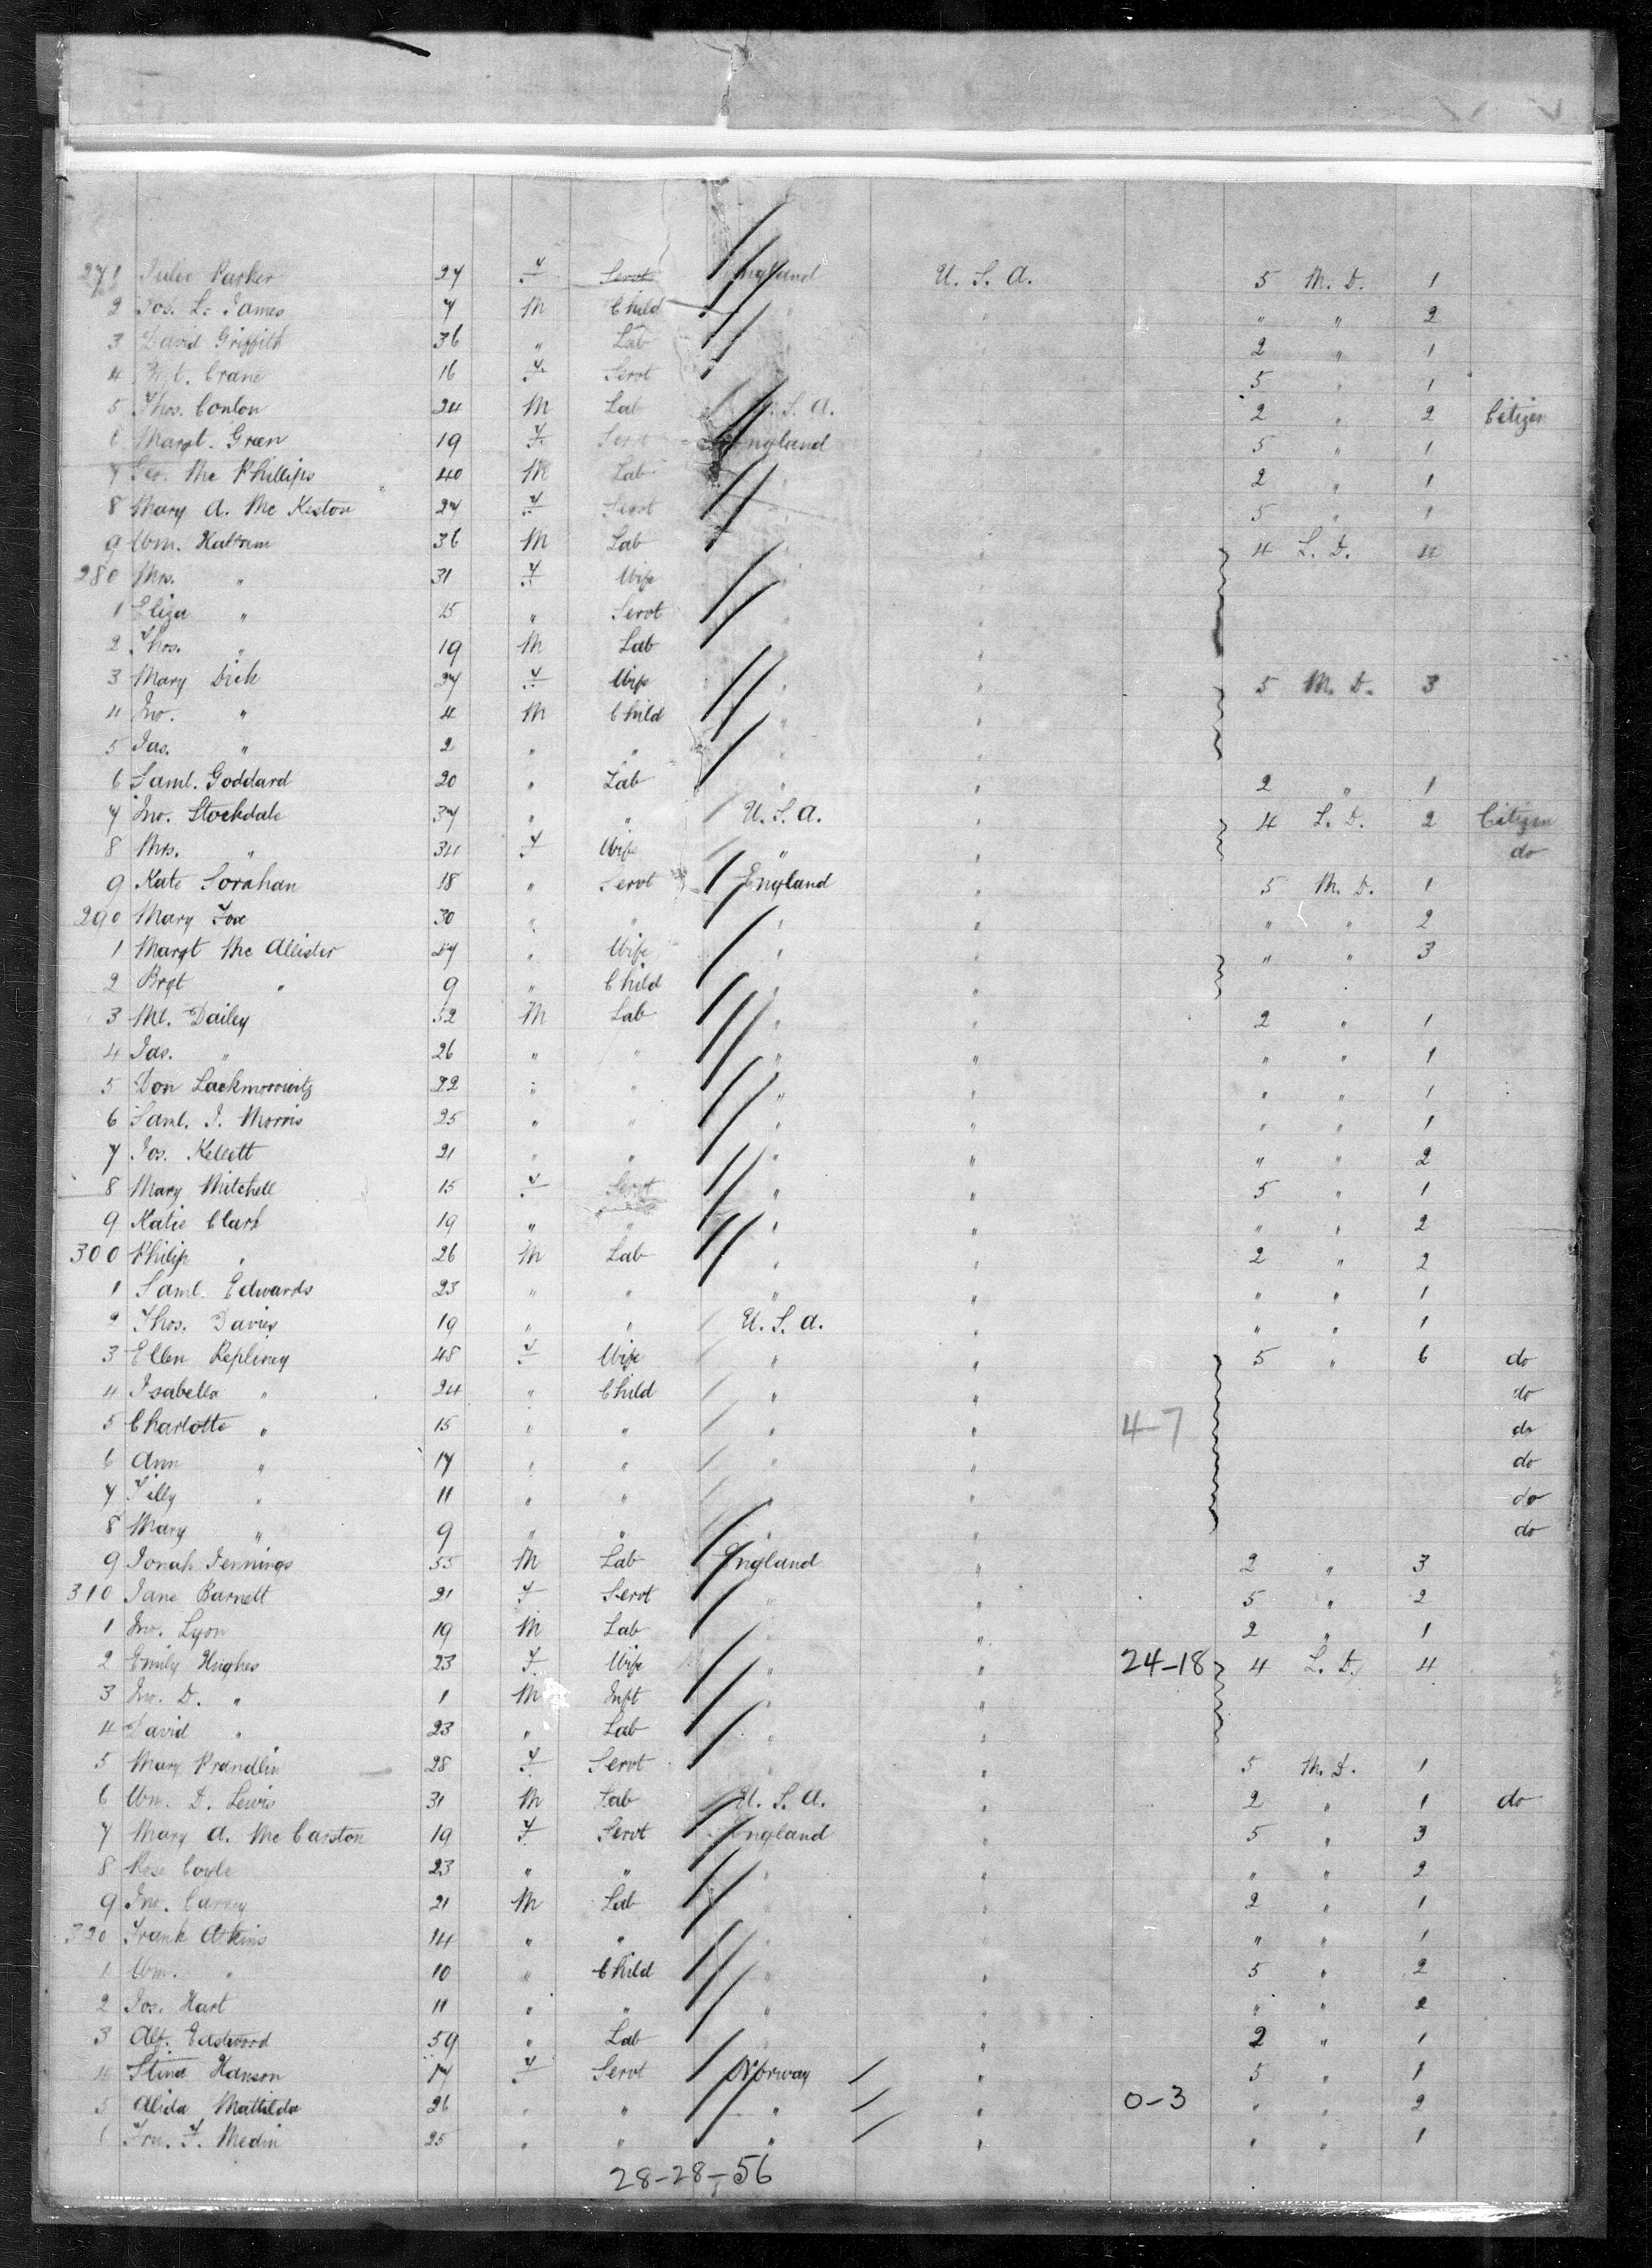 271 Julia Parker 27 F Servt England U. S. A. 5 M. D. 1
2 Jos. L. James 7 M Child " " " " 2
3 David Griffith 36 " Lab " " 2 " 1
4 Bgt. Crane 16 F Servt " " 5 " 1
5 Thos. Conlon 24 M Lab U. S. A. " 2 " 2 Citizen
6 Margt. Green 19 F Servt England " 5 " 1
7 Geo. Mc Phillips 40 M Lab " " 2 " 1
8 Mary A. Mc Keston 27 F Servt " " 5 " 1
9 Wm. 36 M Lab " " 4 L. D. 4
280 Mrs. " 31 F Wife " "
1 Eliza " 15 " Servt " "
2 Thos. " 19 M Lab " "
3 Mary Dick 27 F Wife " " 5 M. D. 3
4 Jno. " 4 M Child " "
5 Jas. " 2 " " " "
6 Saml. Goddard 20 " Lab " " 2 " 1
7 Jno. Stockdale 37 " " U. S. A. " 4 L. D. 2 Citizen
8 Mrs. " 34 F Wife " " do
9 Kate Sorahan 18 " Servt England " 5 M. D. 1
290 Mary Fox 30 " " " " " " 2
1 Margt Mc Allister 27 " Wife " " " " 3
2 Brgt " 9 " Child " "
3 Ml. Dailey 32 M Lab " " 2 " 1
4 Jas. " 26 " " " " " " 1
5 Don Lackmorowitz 22 " " " " " " 1
6 Saml. J. Morris 25 " " " " " " 1
7 Jos. Kellett 21 " " " " " " 2
8 Mary Mitchell 15 F Servt " " 5 " 1
9 Katie Clark 19 " " " " " " 2
300 Philip " 26 M Lab " " 2 " 2
1 Saml. Edwards 23 " " " " " " 1
2 Thos. Davies 19 " " U. S. A. " " " 1
3 Ellen Kepliney 48 F Wife " " 5 " 6 do
4 Isabella " 24 " Child " " do
5 Charlotte " 15 " " " " 4-7 do
6 Ann " 17 " " " " do
7 Tilly " 11 " " " " do
8 Mary " 9 " " " " do
9 Jonah Jennings 55 M Lab England " 2 " 3
310 Jane Barnett 21 F Servt " " 5 " 2
1 Jno. Lyon 19 M Lab " " 2 " 1
2 Emily Hughes 23 F Wife " " 24-18 4 L. D. 4
3 Jno. D. " 1 M Inft " "
4 David " 23 " Lab " "
5 Mary Prandlin 28 F Servt " " 5 M. D. 1
6 Wm. D. Lewis 31 M Lab U. S. A. " 2 " 1 do
7 Mary A. Mc Carston 19 F Servt England " 5 " 3
8 Rose Coyle 23 " " " " " " 2
9 Jno. Carney 21 M Lab " " 2 " 1
320 Frank Atkins 14 " " " " " " 1
1 Wm. " 10 " Child " " 5 " 2
2 Jos. Hart 11 " " " " " " 2
3 Alf. Eastwood 59 " Lab " " 2 " 1
4 Stina Hanson 17 F Servt Norway " 5 " 1
5 Alida Mattilda 26 " " " " 0-3 " " 2
6 F. Medin 25 " " " " " " 1
28-28-56